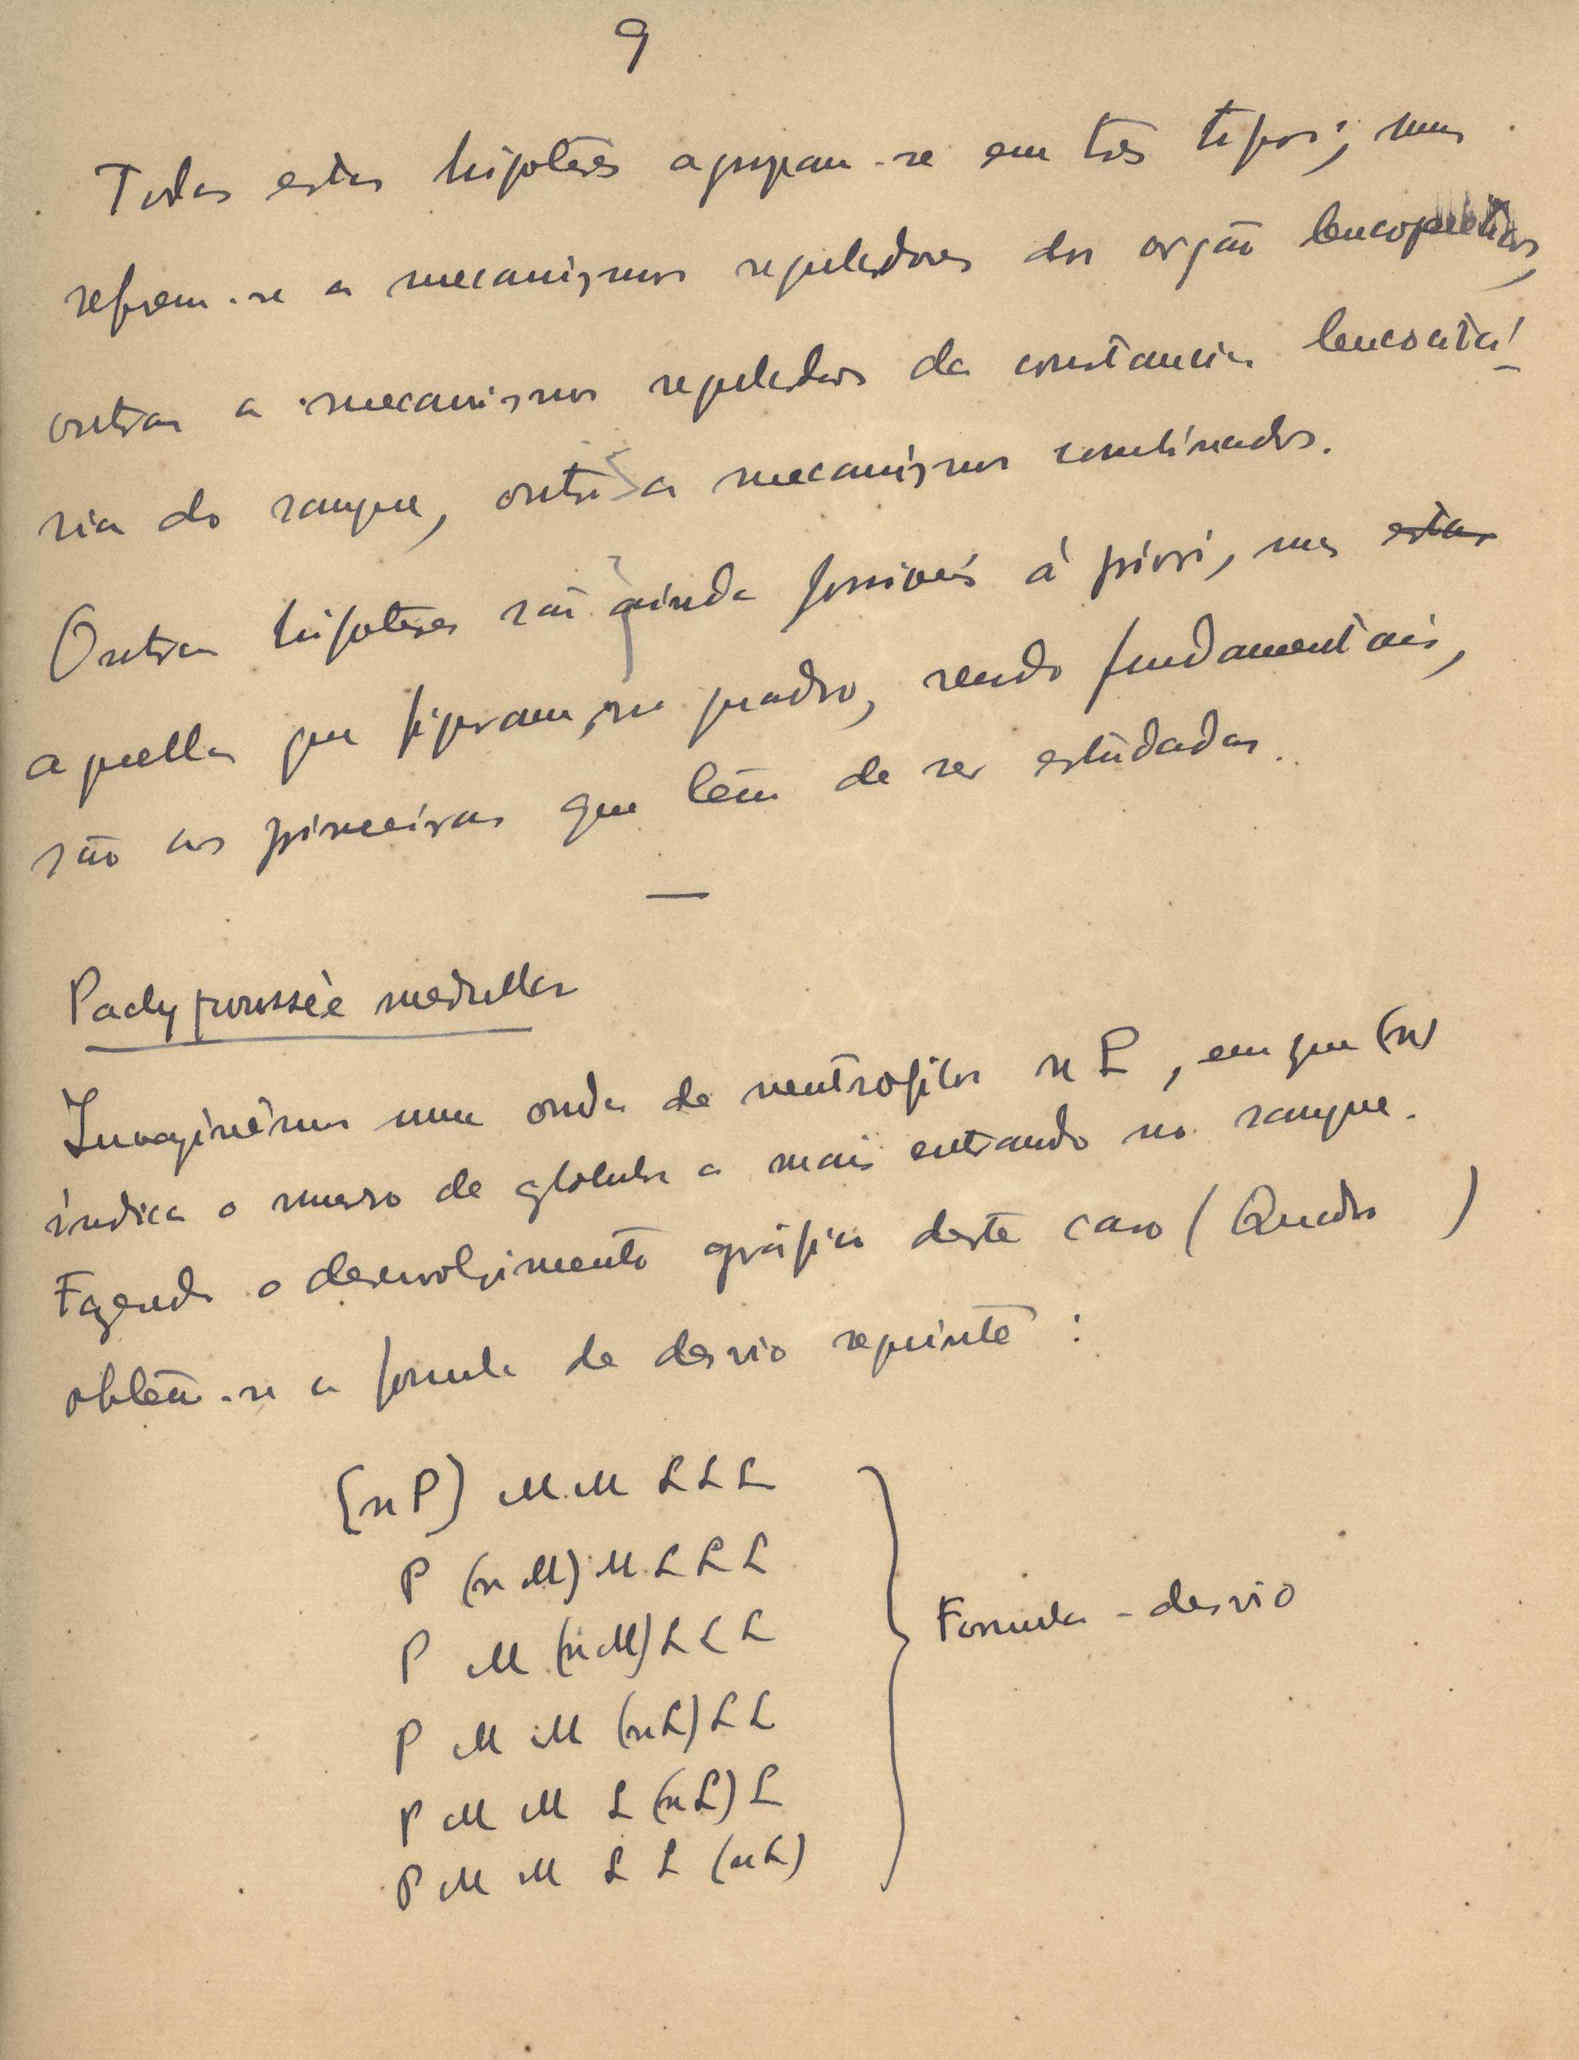 9
Todas estas hipoteses agrupam-se em três tipos; umas
referem-se a mecanismos reguladores dos orgão leucopoeticos,
outras a mecanismos reguladores da constancia leucocitá-
ria do sangue, outras a mecanismos combinados.
Outras hipoteses são ainda possiveis á priori, mas estas
aquellas que figuram, no quadro, sendo fundamentais,
são as primeiras que têm de ser estudadas.
Pachypoussèe medullar
Imaginêmos uma onda de neutrofilos n P, em que (n)
indica o numero de globulos a mais entrando no sangue.
Fazendo o desenvolvimento gráfico deste caso (Quadro )
obtem-se a formula de desvio seguinte :
[n P] M M L L L
P (n M) M L L L
P M (n M) L L L
P M M (n L) L L
P M M L (n L) L
P M M L L (n L)
Formula - desvio